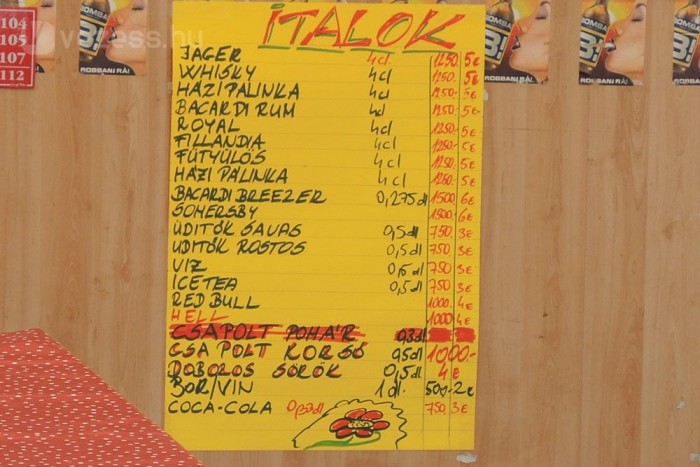 104
105
107
112
vg.ess.hu
ROBBANJ RÁ!
BOMBA!
ROBBANJ RÁ!
ROBBANJ RÁ!
ITALOK
JÄGER 4cl 1250 5€
WHISKY 4cl 1250. 5€
HÁZIPÁLINKA 4cl 1250- 5€
BACARDI RUM 4cl 1250- 5€
ROYAL 4cl 1250 5€
FILLANDIA 4cl 1250- 5€
FÜTYÜLŐS 4cl 1250 5€
HÁZI PÁLINKA 4cl 1250 5€
BACARDI BREEZER 0,275dl 1500 6€
SOMERSBY 1500- 6€
ÜDITŐK SAVAS 0,5dl 750. 3€
ÜDITŐK ROSTOS 0,5dl 750 3€
VIZ 0,5dl 750 3€
ICETEA 0,5dl 750 3€
RED BULL 1000. 4€
HELL 1000 4€
CSAPOLT POHÁR 0,3dl
CSAPOLT KORSÓ 0,5dl 1000-
DOBOZOS SÖRÖK 0,5dl 4€
BOR/VIN 1dl. 500,- 2€
COCA-COLA 0,33dl 750. 3€